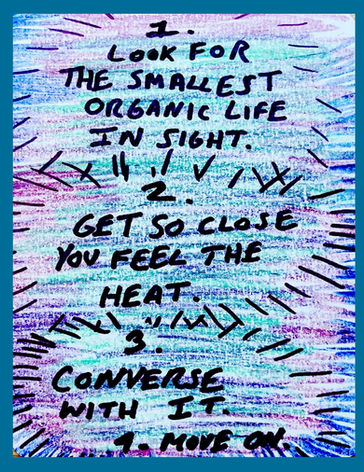 1.
LOOK FOR
THE SMALLEST
ORGANIC LIFE
IN SIGHT.
2.
GET SO CLOSE
YOU FEEL THE
HEAT.
3.
CONVERSE
WITH IT.
4. MOVE ON.